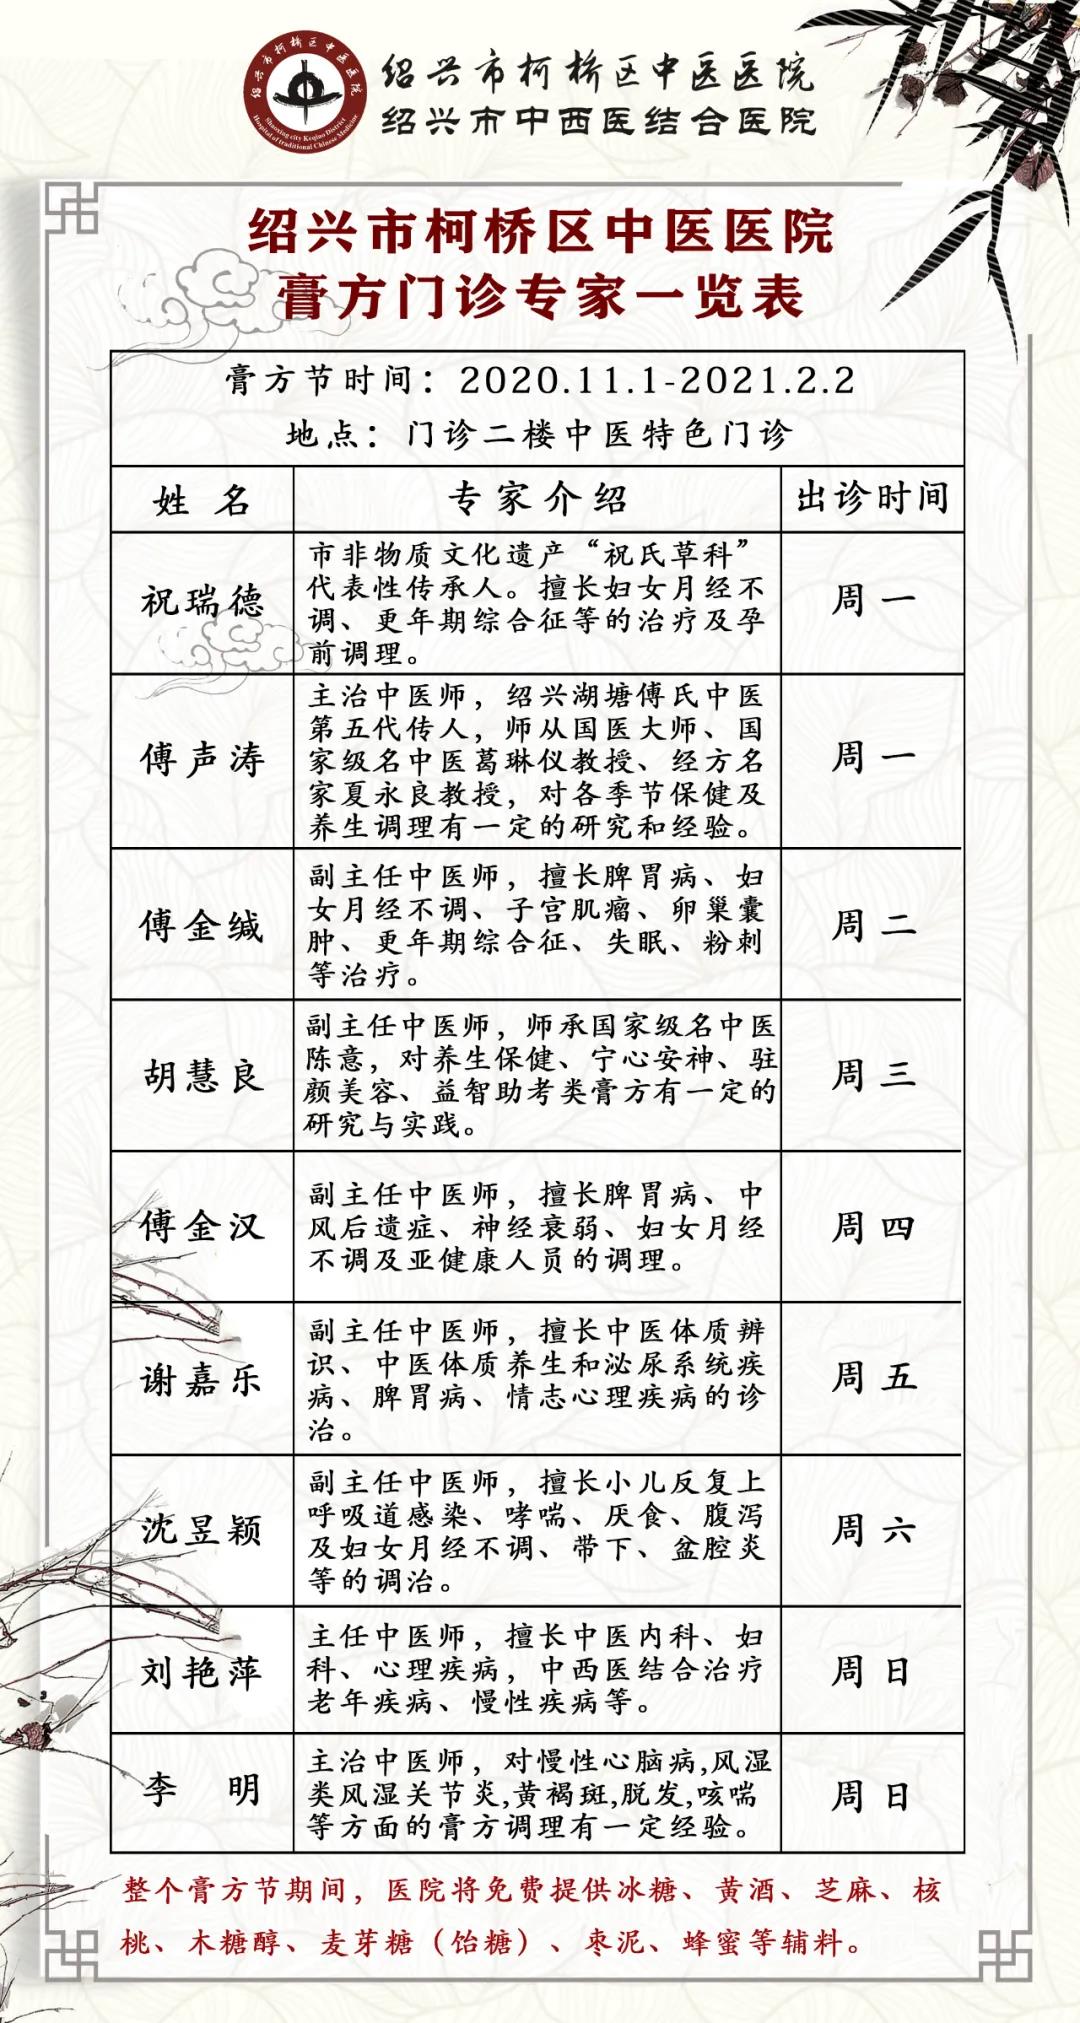 绍兴市柯桥区中医医院
Shaoxing city Keqiao District
Hospital of traditional Chinese Medicine
绍兴市柯桥区中医医院
绍兴市中西医结合医院
绍兴市柯桥区中医医院
膏方门诊专家一览表
膏方节时间：2020.11.1-2021.2.2
地点：门诊二楼中医特色门诊
姓 名
专家介绍
出诊时间
祝瑞德
市非物质文化遗产“祝氏草科”
代表性传承人。擅长妇女月经不
调、更年期综合征等的治疗及孕
前调理。
周一
傅声涛
主治中医师，绍兴湖塘傅氏中医
第五代传人，师从国医大师、国
家级名中医葛琳仪教授、经方名
家夏永良教授，对各季节保健及
养生调理有一定的研究和经验。
周一
傅金缄
副主任中医师，擅长脾胃病、妇
女月经不调、子宫肌瘤、卵巢囊
肿、更年期综合征、失眠、粉刺
等治疗。
周二
胡慧良
副主任中医师，师承国家级名中医
陈意，对养生保健、宁心安神、驻
颜美容、益智助考类膏方有一定的
研究与实践。
周三
傅金汉
副主任中医师，擅长脾胃病、中
风后遗症、神经衰弱、妇女月经
不调及亚健康人员的调理。
周四
谢嘉乐
副主任中医师，擅长中医体质辨
识、中医体质养生和泌尿系统疾
病、脾胃病、情志心理疾病的诊
治。
周五
沈昱颖
副主任中医师，擅长小儿反复上
呼吸道感染、哮喘、厌食、腹泻
及妇女月经不调、带下、盆腔炎
等的调治。
周六
刘艳萍
主任中医师，擅长中医内科、妇
科、心理疾病，中西医结合治疗
老年疾病、慢性疾病等。
周日
李 明
主治中医师，对慢性心脑病,风湿
类风湿关节炎,黄褐斑,脱发,咳喘
等方面的膏方调理有一定经验。
周日
整个膏方节期间，医院将免费提供冰糖、黄酒、芝麻、核
桃、木糖醇、麦芽糖（饴糖）、枣泥、蜂蜜等辅料。